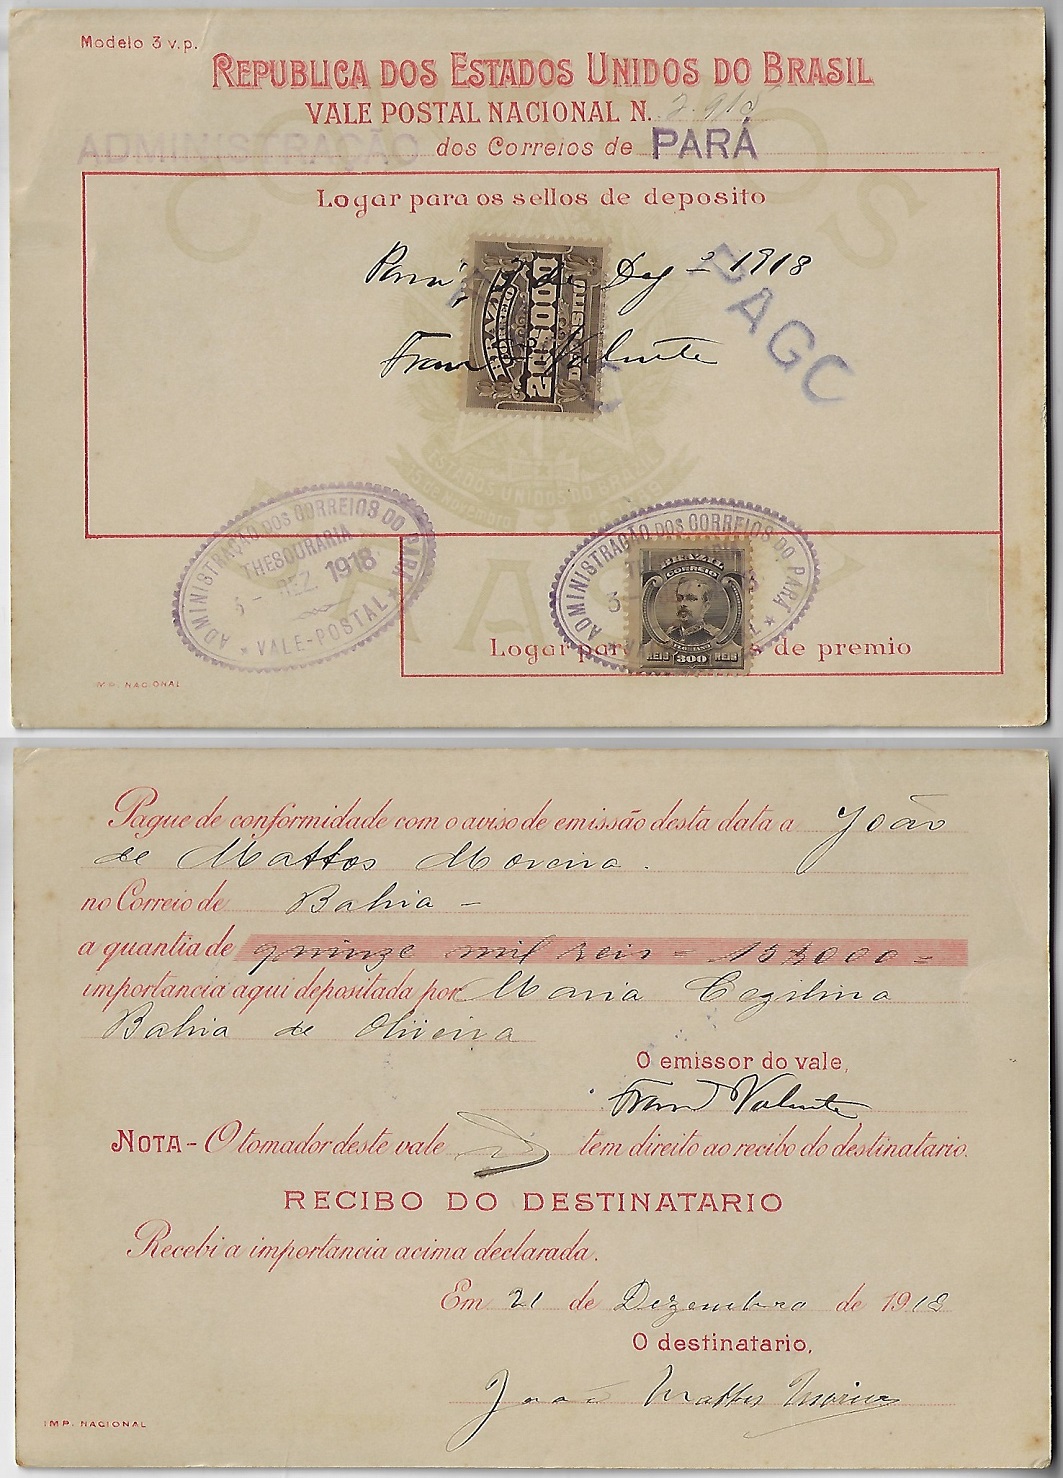 Modelo 3 v.p.
REPUBLICA DOS ESTADOS UNIDOS DO BRASIL
VALE POSTAL NACIONAL N. 2.918
ADMINISTRAÇÃO dos Correios de PARÁ
Logar para os sellos de deposito
Pará, 3 de Dez.º 1918
PAGO
BRAZIL
CORREIO
20$000
DEPOSITO
Franc Valente
CORREIOS
ESTADOS UNIDOS DO BRAZIL
15 DE NOVEMBRO
ADMINISTRAÇÃO DOS CORREIOS DO PARÁ
THESOURARIA
3 - DEZ. 1918
* VALE-POSTAL *
ADMINISTRAÇÃO DOS CORREIOS DO PARÁ
3 -
BRAZIL
CORREIO
REIS 300 REIS
Logar para s de premio
IMP. NACIONAL
Pague de conformidade com o aviso de emissão desta data a João
de Mattos Moreira.
no Correio de Bahia -
a quantia de quinze mil reis - 15$000 =
importancia aqui depositada por Maria Cezilina
Bahia de Oliveira
O emissor do vale,
Franc Valente
NOTA - O tomador deste vale tem direito ao recibo do destinatario.
RECIBO DO DESTINATARIO
Recebi a importancia acima declarada.
Em 21 de Dezembro de 1918
O destinatario,
João Mattos Moreira
IMP. NACIONAL